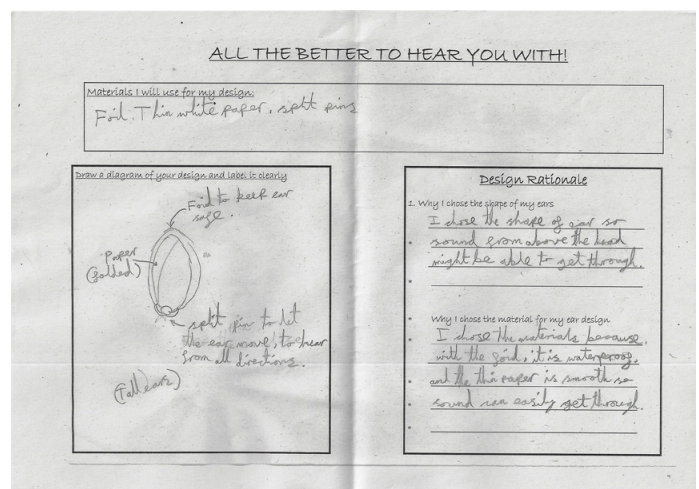 ALL THE BETTER TO HEAR YOU WITH!
Materials I will use for my design:
Foil. Thin white paper, split pins
Draw a diagram of your design and label it clearly
Foil to keep ear
safe.
Paper
(folded)
split pin to let
the ear move, to hear
from all directions.
(Tall ears)
Design Rationale
1. Why I chose the shape of my ears
I chose the shape of ear so
sound from above the head
might be able to get through.
Why I chose the material for my ear design
I chose the materials because,
with the foid, it is waterproof,
and the thin paper is smooth so
sound can easily get through.